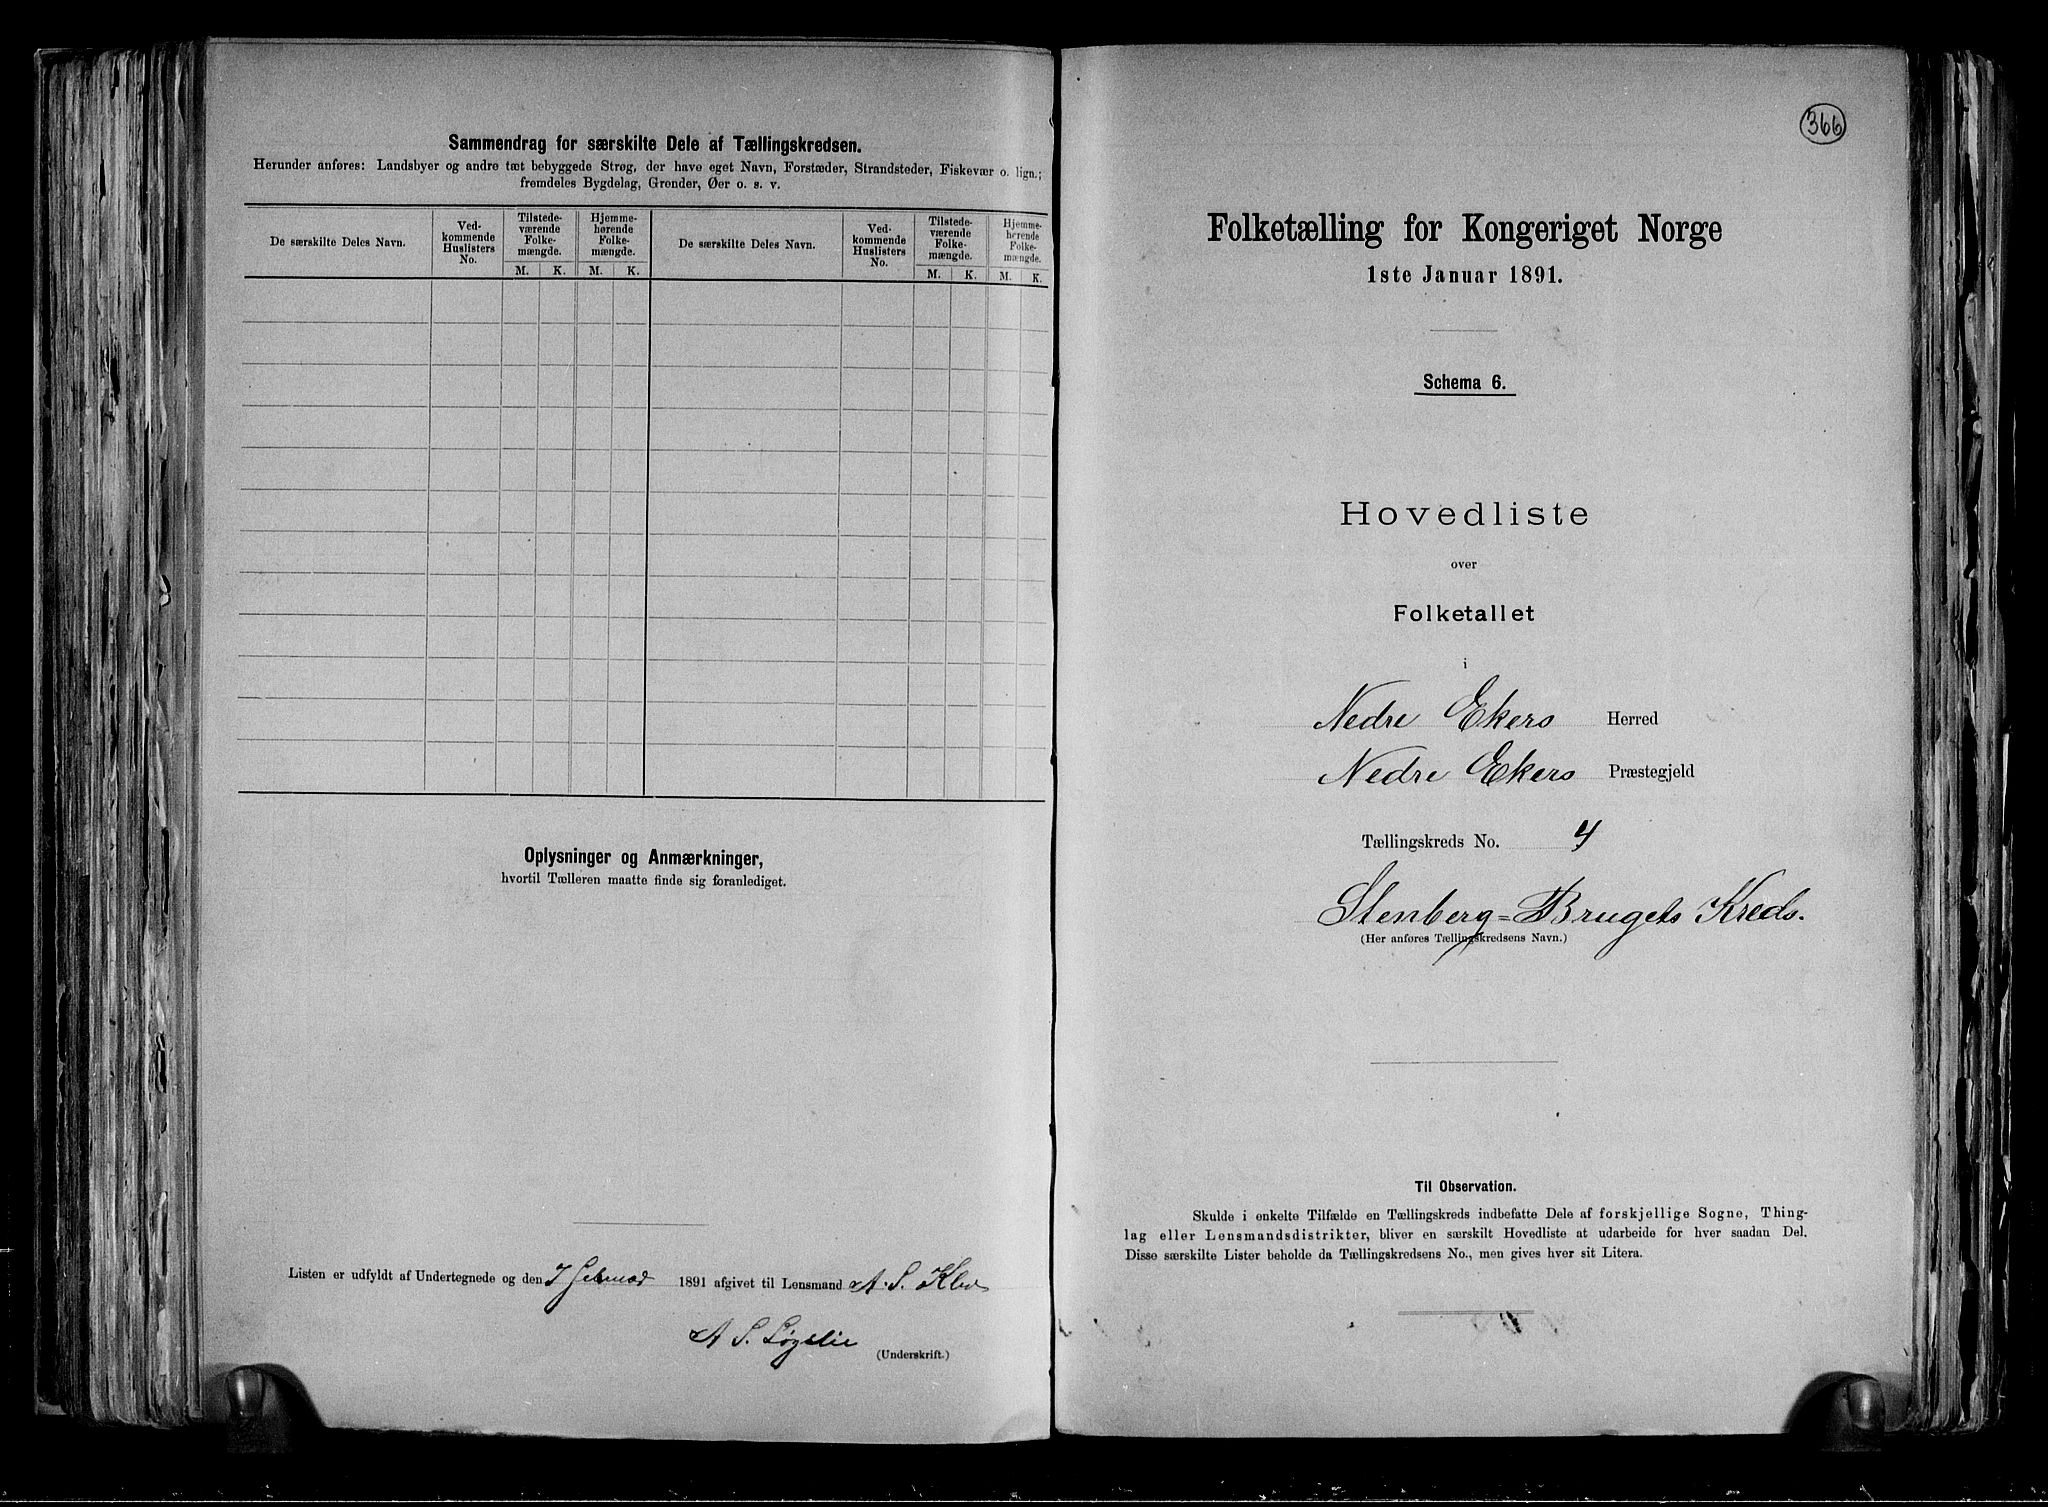 Sammendrag for særskilte Dele af Tællingskredsen.
Herunder anføres: Landsbyer og andre tæt bebyggede Strøg, der have eget Navn, Forstæder, Strandsteder, Fiskevær o. lign.;
fremdeles Bygdelag, Grender, Øer o. s. v.
De særskilte Deles Navn.
Ved-
kommende
Huslisters
No.
Tilstede-
værende
Folke-
mængde.
Hjemme-
hørende
Folke-
mængde.
De særskilte Deles Navn.
Ved-
kommende
Huslisters
No.
Tilstede-
værende
Folke-
mængde.
Hjemme-
hørende
Folke-
mængde.
M. K. M. K. M. K. M. K.
Oplysninger og Anmærkninger,
hvortil Tælleren maatte finde sig foranlediget.
Listen er udfyldt af Undertegnede og den 7 Februar 1891 afgivet til Lensmand A. S.
A S.
(Underskrift.)
366
Folketælling for Kongeriget Norge
1ste Januar 1891.
Schema 6.
Hovedliste
over
Folketallet
i
Nedre Ekers Herred
Nedre Ekers Præstegjeld
Tællingskreds No. 4
Stenberg=Brugets Kreds.
(Her anføres Tællingskredsens Navn.)
Til Observation.
Skulde i enkelte Tilfælde en Tællingskreds indbefatte Dele af forskjellige Sogne, Thing-
lag eller Lensmandsdistrikter, bliver en særskilt Hovedliste at udarbeide for hver saadan Del.
Disse særskilte Lister beholde da Tællingskredsens No., men gives hver sit Litera.